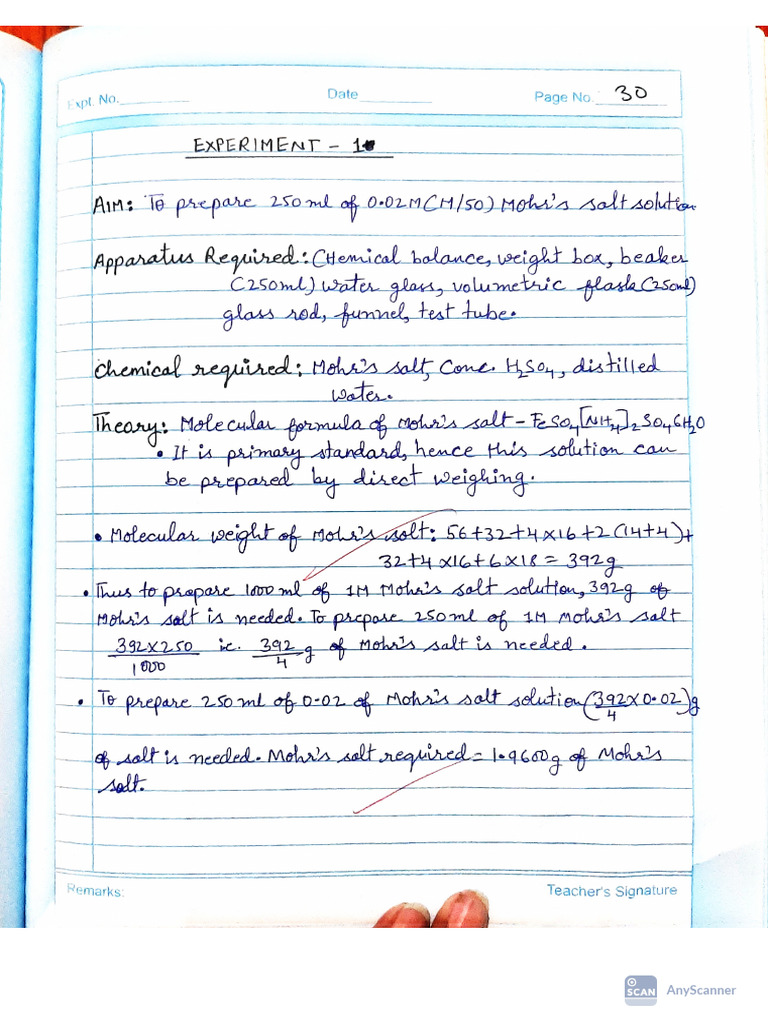 Expt. No. Date Page No. 30
EXPERIMENT - 1
AIM: To prepare 250 ml of 0.02M (M/50) Mohr's salt solution
Apparatus Required: Chemical balance, weight box, beaker
(250ml) water glass, volumetric flask (250ml)
glass rod, funnel, test tube.
Chemical required: Mohr's salt, Conc. H₂SO₄, distilled
water.
Theory: Molecular formula of Mohr's salt - FeSO₄[NH₄]₂SO₄6H₂O
• It is primary standard, hence this solution can
be prepared by direct weighing.
• Molecular weight of Mohr's salt: 56+32+4×16+2(14+4)+
32+4×16+6×18 = 392g
• Thus to prepare 1000 ml of 1M Mohr's salt solution, 392g of
Mohr's salt is needed. To prepare 250 ml of 1M Mohr's salt
392×250/1000 ie. 392/4 g of Mohr's salt is needed.
• To prepare 250 ml of 0.02 of Mohr's salt solution (392/4 × 0.02)g
of salt is needed. Mohr's salt required = 1.9600g of Mohr's
salt.
Remarks: Teacher's Signature
SCAN AnyScanner